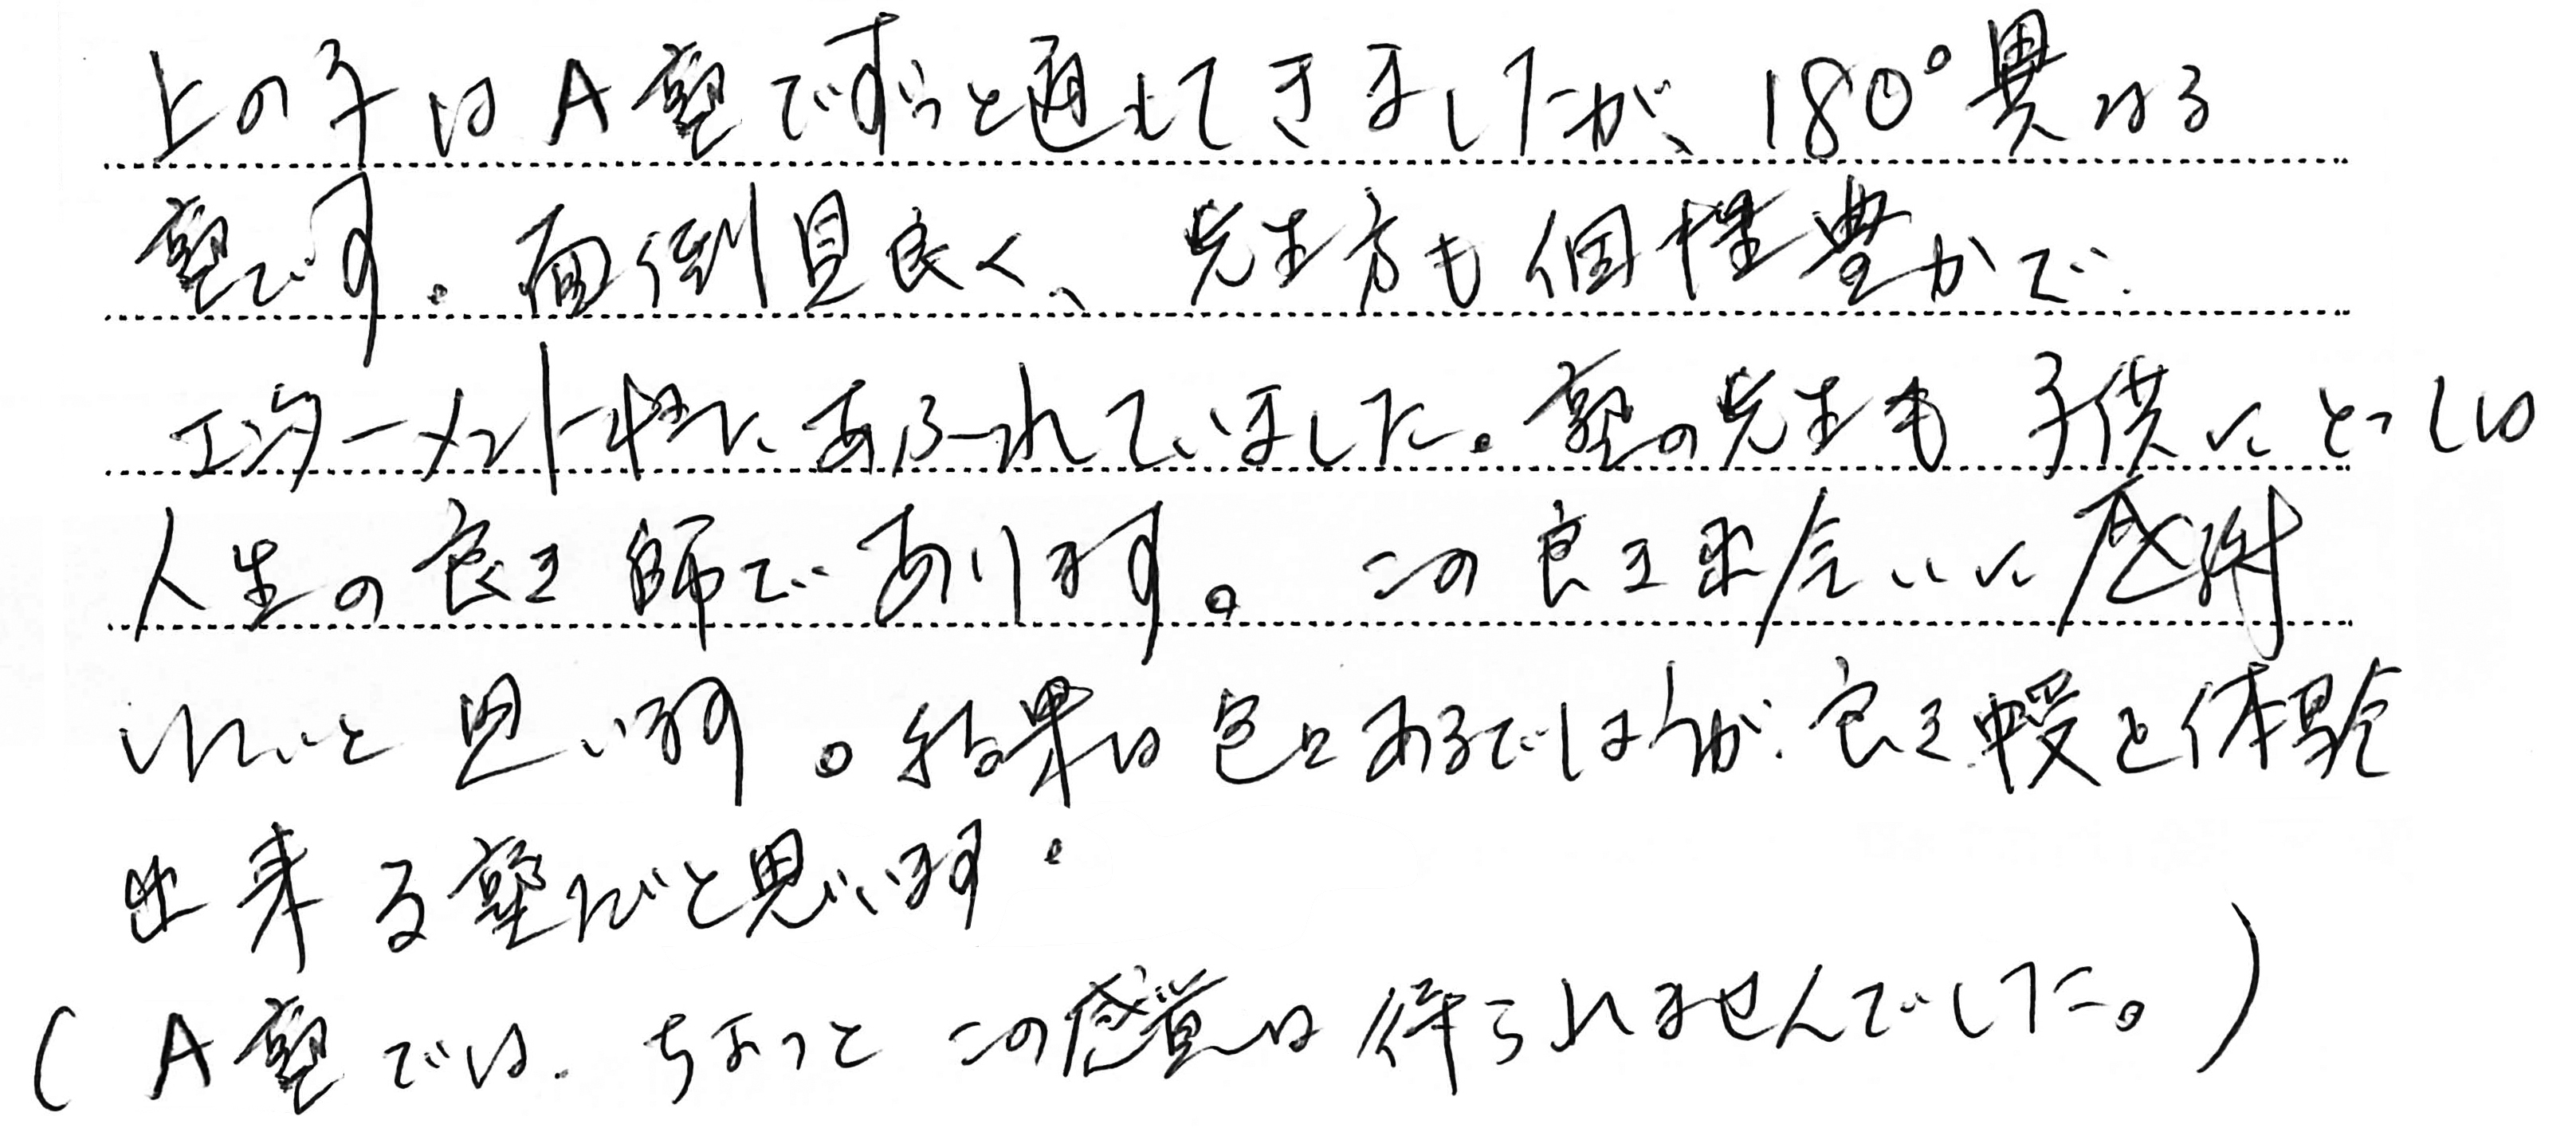 上の子はA塾でずっと通してきましたが、180°異なる
塾です。面倒見良く、先生方も個性豊かで、
エンターメント性にあふれていました。塾の先生も子供にとっては
人生の良き師であります。この良き出会いに感謝
したいと思います。結果は色々あるでしょうが、良き時間を体験
出来る塾だと思います。
(A塾では、ちょっとこの感覚は得られませんでした。)